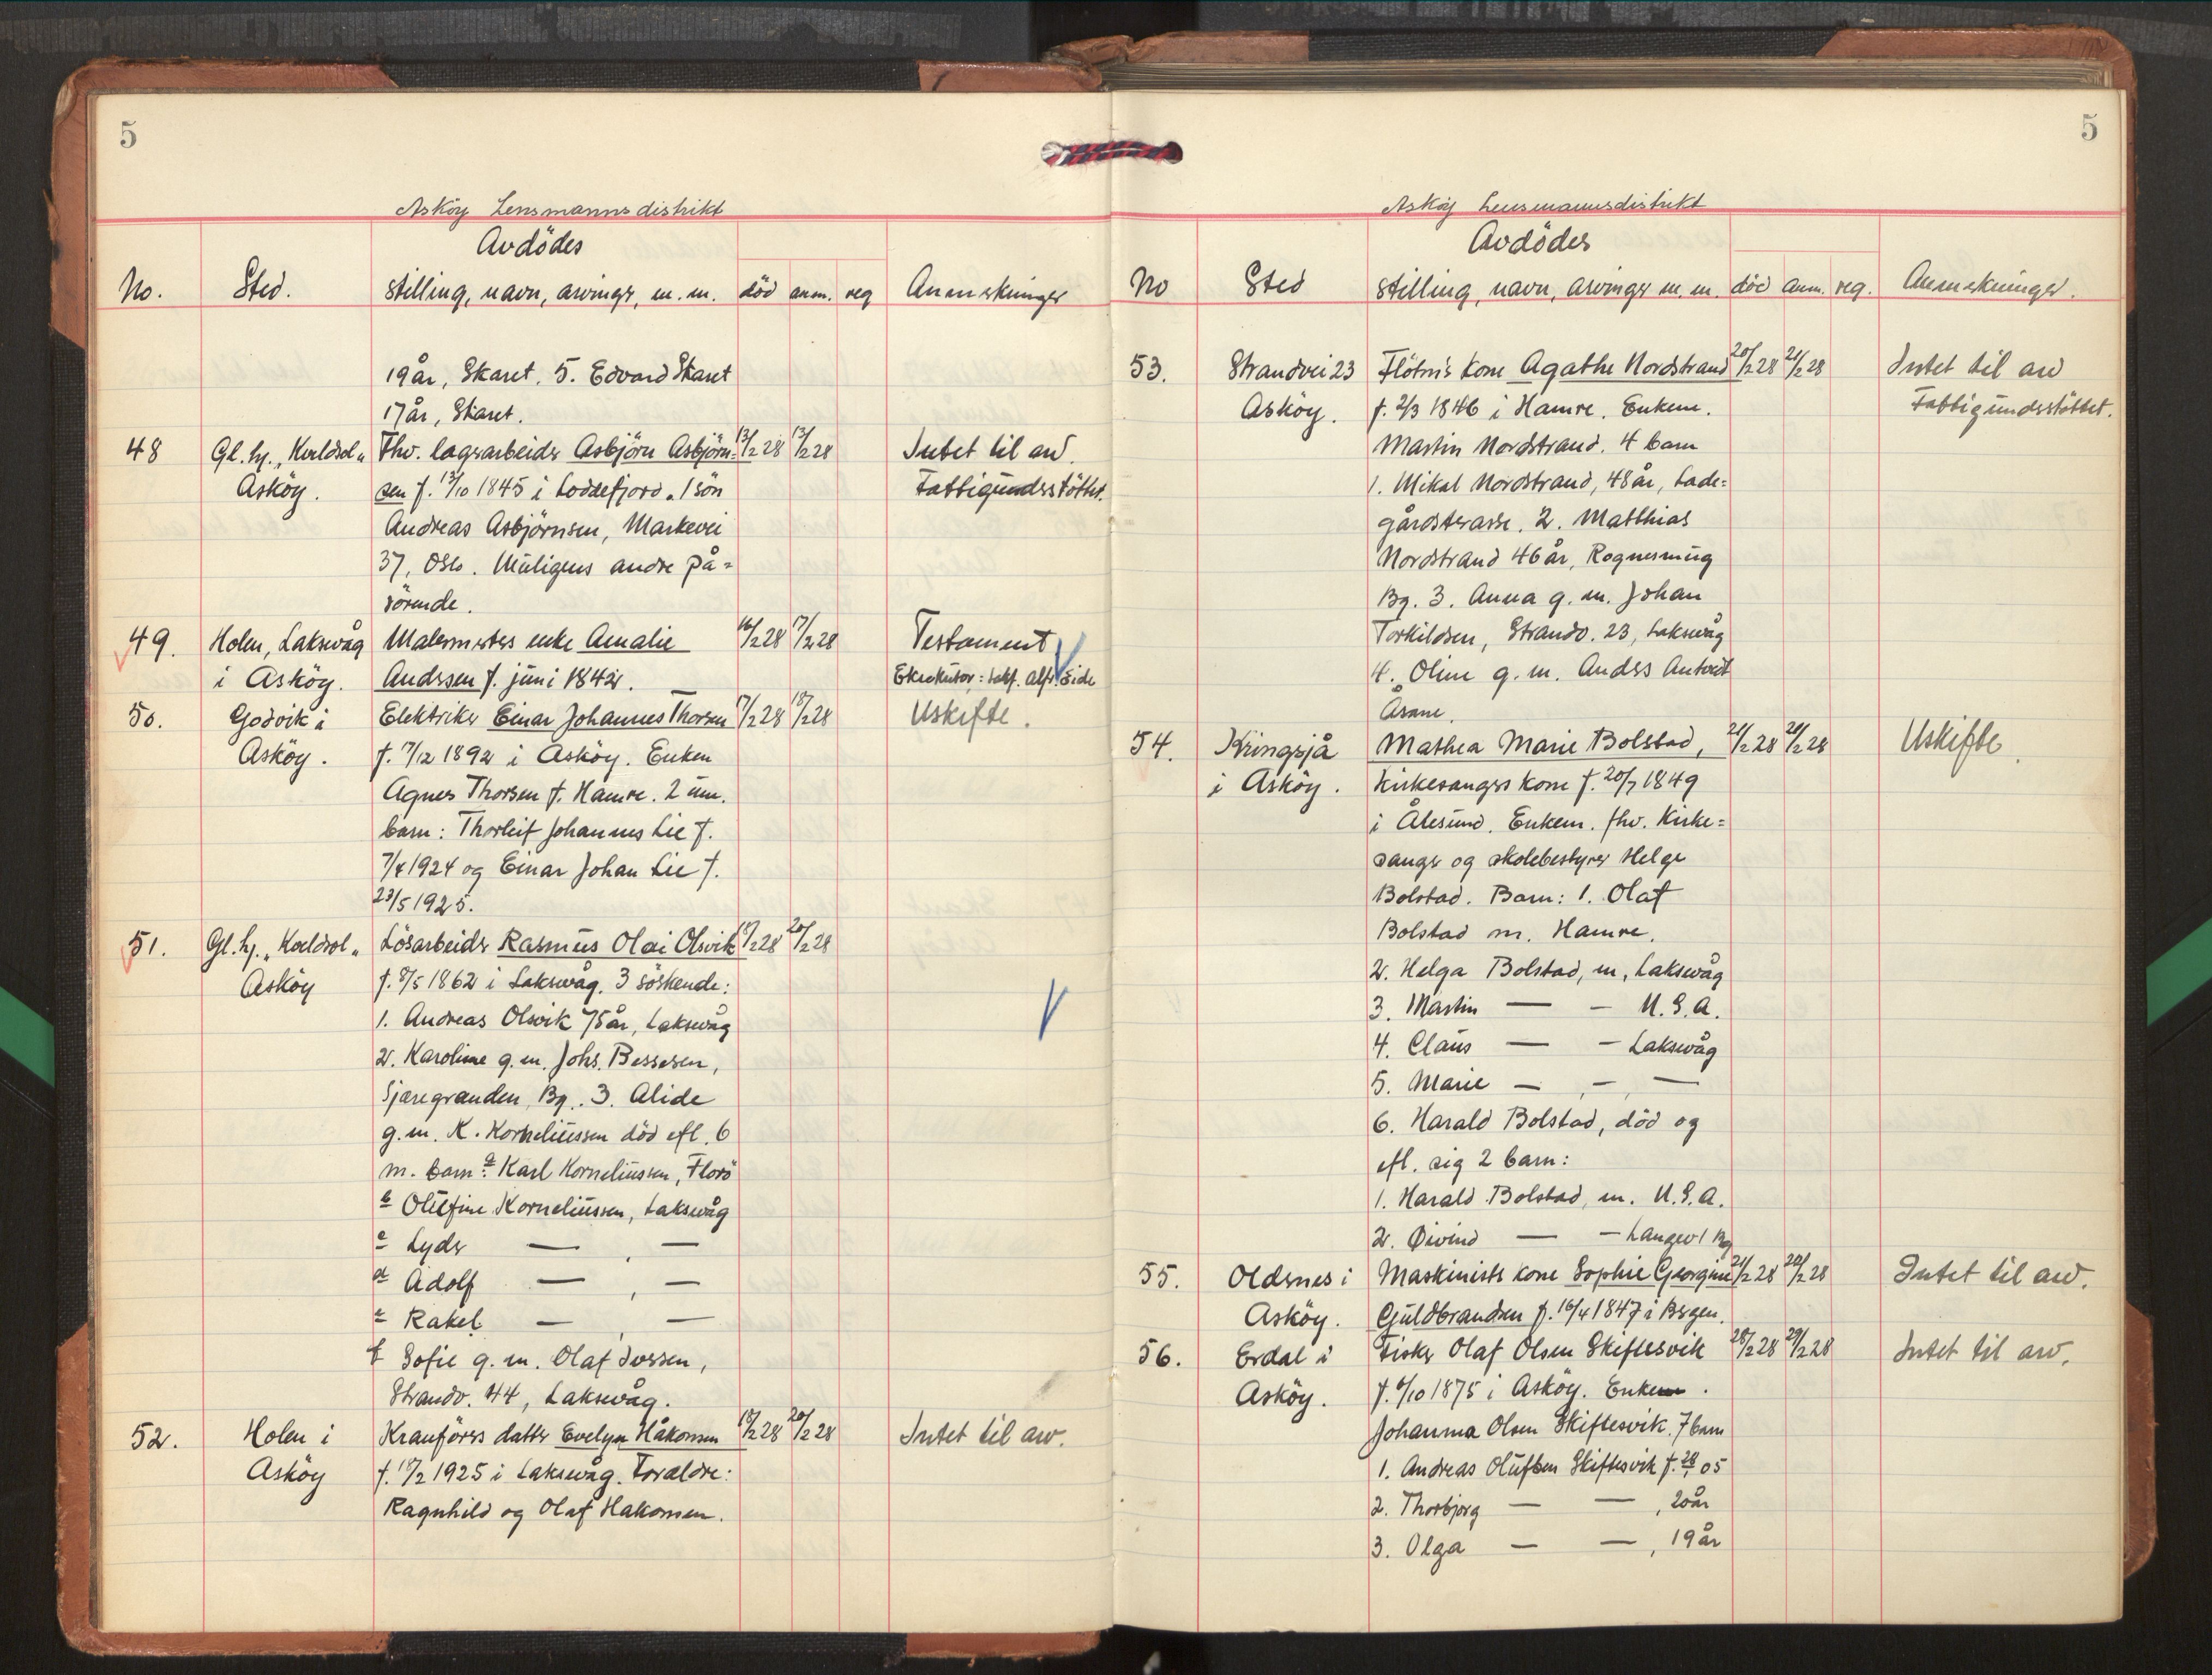 5
Asköy Lensmannsdistrikt
Avdödes
No. Sted. stilling, navn, arvinger, m. m. död anm. reg Anmerkninger
19 år, Skaret. 5. Edvard Skaret
17 år, Skaret.
48 Gl. hj. „Kveldsol" Fhv. lagerarbeider Asbjörn Asbjörn= 13/2 28 13/2 28 Intet til arv.
Asköy. sen f. 13/10 1845 i Loddefjord. 1 sön Fattigundsstöttet.
Andreas Asbjörnsen, Markevei
37, Oslo. Muligens andre på=
rörende.
49. Holen, Laksevåg Malermesters enke Amalie 16/2 28 17/2 28 Testament
i Asköy. Andersen f. juni 1842. Eksekutor: sakf. Alfr. Eide
50. Godvik i Elektriker Einar Johannes Thorsen 17/2 28 18/2 28 Uskifte.
Asköy. f. 7/12 1892 i Asköy. Enken
Agnes Thorsen f. Hamre. 2 um.
barn: Thorleif Johannes Lie f.
7/4 1924 og Einar Johan Lie f.
23/5 1925.
51. Gl. hj. „Kveldsol" Lösarbeider Rasmus Olai Olsvik 18/2 28 20/2 28
Asköy f. 8/5 1862 i Laksevåg. 3 söskende:
1. Andreas Olsvik 75 år, Laksevåg
2. Karoline g. m. Johs. Bessesen,
Sjæregranden, Bg. 3. Alide
g. m. K. Korneliussen död efl. 6
m. barn: a Karl Korneliussen, Florö
b Olufine Korneliussen, Laksevåg
c Lyder — , —
d Adolf — , —
e Rakel — , —
f Sofie g. m. Olaf Iversen,
Strandv. 44, Laksevåg.
52. Holen i Kranförers datter Evelyn Håkonsen 18/2 28 20/2 28 Intet til arv.
Asköy f. 18/2 1925 i Laksevåg. Foreldre:
Ragnhild og Olaf Hakonsen.
5
Asköy Lensmannsdistrikt
Avdödes
No Sted stilling, navn, arvinger m. m. död anm. reg. Anmerkninger.
53. Strandvei 23 Flötm's kone Agathe Nordstrand 20/2 28 21/2 28 Intet til arv
Asköy. f. 2/3 1846 i Hamre. Enkem. Fattigundsstöttet.
Martin Nordstrand. 4 barn
1. Mikal Nordstrand, 48 år, Lade=
gårdsterasse. 2. Matthias
Nordstrand 46 år, Rognesmug
Bg. 3. Anna g. m. Johan
Torkildsen, Strandv. 23, Laksevåg
4. Oline g. m. Anders Antveit
Åsane.
54. Kringsjå Mathea Marie Bolstad, 21/2 28 21/2 28 Uskifte.
i Asköy. Kirkesangers kone f. 20/7 1849
i Ålesund. Enkem. fhv. Kirke=
sanger og skolebestyrer Helge
Bolstad. Barn: 1. Olaf
Bolstad m. Hamre.
2. Helga Bolstad, m, Laksevåg
3. Martin — – U.S.A.
4. Claus — – Laksevåg
5. Marie — , – , —
6. Harald Bolstad, död og
efl. sig 2 barn:
1. Harald Bolstad, m. U.S.A.
2. Øivind — – Langev 1 Bg
55. Oldernes i Maskinists kone Sophie Georgine 21/2 28 22/2 28 Intet til arv.
Asköy. Guldbrandsen f. 16/4 1847 i Bergen.
56. Erdal i Fisker Olaf Olsen Skiftesvik 28/2 28 29/2 28 Intet til arv.
Asköy. f. 6/10 1875 i Asköy. Enken.
Johanna Olsen Skiftesvik. 7 barn
1. Andreas Olufsen Skiftesvik f. 05
2. Thorbjorg — — , 20 år
3. Olga — — , 19 år